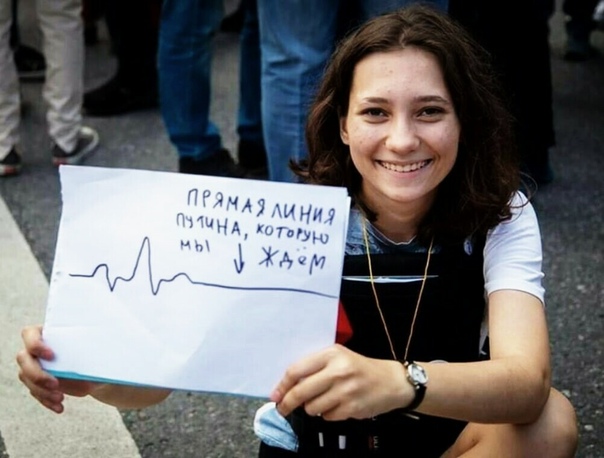 ПРЯМАЯ ЛИНИЯ
ПУТИНА, КОТОРУЮ
МЫ ЖДЁМ